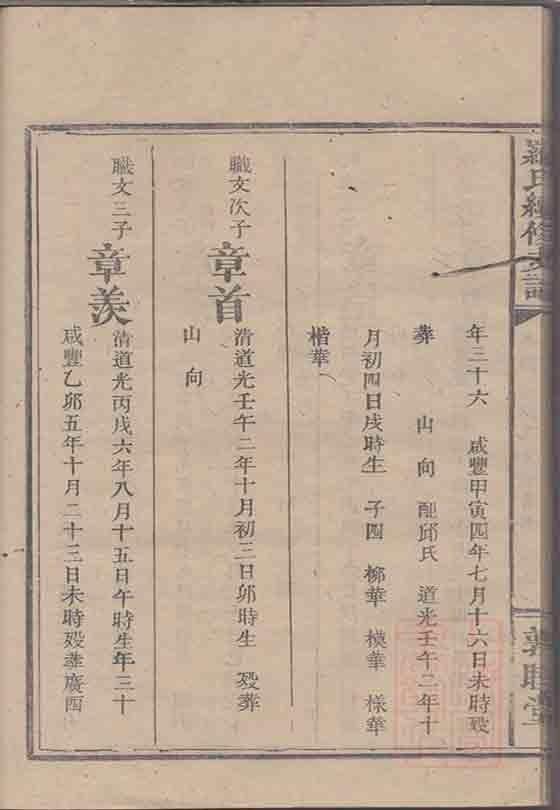 羅氏續修支譜
敦睦堂
年三十六 咸豐甲寅四年七月十六日未時歿
葬 山 向 配邱氏 道光壬午二年十
月初四日戌時生 子四 梆華 模華 様華
楷華
職文次子 章首 清道光壬午二年十月初三日卯時生 歿葬
山 向
職文三子 章羨 清道光丙戌六年八月十五日午時生年三十
咸豐乙卯五年十月二十三日未時歿葬廣西